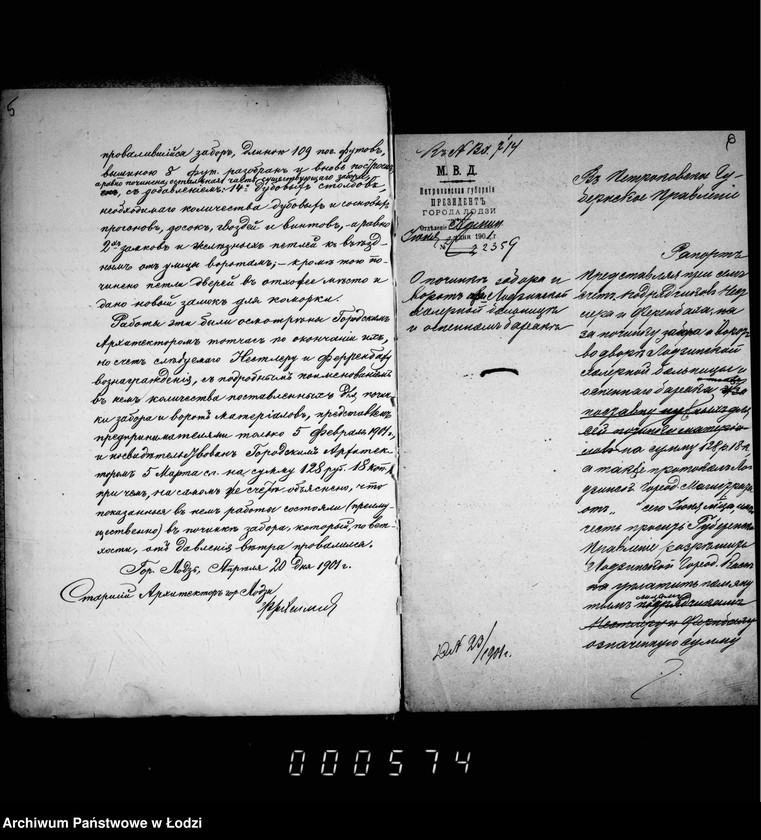 5
провалившiйся заборъ, длиною 109 пог. футовъ
вышиною 8 фут. разобранъ и вновь построенъ,
а равно починена остальная часть существующаго забора,
съ добавленiемъ: 14 дубовыхъ столбовъ,
необходимаго количества дубовыхъ и сосновыхъ
прогоновъ, досокъ, гвоздей и винтовъ, а равно
2хъ замковъ и желѣзныхъ петлей къ въѣзд-
нымъ отъ улицы воротамъ; кромѣ того по-
чинено петли дверей въ отхожее мѣсто и
дано новой замокъ для коморки.
Работы эти были осмотрѣны Городскимъ
Архитекторомъ тотчасъ по окончанiи ихъ,
но счетъ слѣдуемаго Нестлеру и Ферренбаху
вознагражденiя, съ подробнымъ поименованiемъ
въ немъ количества поставленныхъ для почин-
ки забора и воротъ матерiаловъ, представленъ
предпринимателями только 5 февраля 1901 г.,
и освидѣтельствованъ Городскимъ Архитек-
торомъ 5 Марта с.г. на сумму 128 руб. 18 коп.,
при чемъ, на самомъ же счетѣ объяснено, что
показанныя въ немъ работы состояли (преиму-
щественно) въ починкѣ забора, который по вет-
хости, отъ давленiя вѣтра провалился.
Гор. Лодзь, Апрѣля 20 дня 1901 г.
Старшiй Архитекторъ гор. Лодзи
6
М. В. Д.
Петроковская губернiя
ПРЕЗИДЕНТЪ
ГОРОДА ЛОДЗИ
Отдѣленiе Админ
Iюня дня 1901 г.
№ 2359
О починкѣ забора и
воротъ при Лодзинской
холерной больницѣ
и оспенномъ баракѣ
№ 23/1901 г.
Въ Петроковское Гу-
бернское Правленiе
Рапортъ
Представляя при семъ
счетъ подрядчиковъ Нес-
тлера и Ферренбаха, на
за починку забора и воротъ
во дворѣ Лодзинской
холерной больницы и
оспеннаго барака
на сумму 128 р. 18 к.
а также протоколъ Ло-
дзинск. Город. Магистрата
отъ „ сего Iюня мѣсяца имѣю
честь просить Губернское
Правленiе разрѣшить
Лодзинской Город. Кассѣ
уплатить помяну
тымъ подрядчикамъ
Нестлеру и Ферренбаху
означенную сумму
000574
Archiwum Państwowe w Łodzi